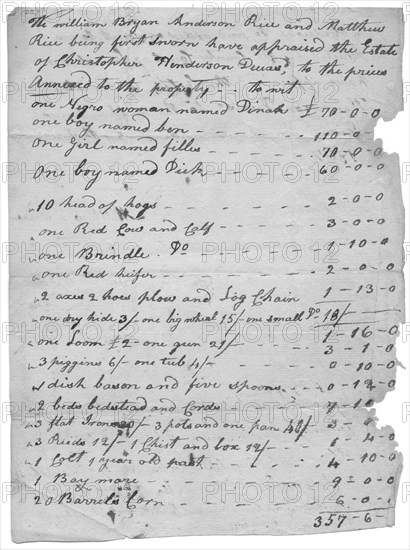 We william Bryan Anderson Rice and Matthew
Rice being first Sworn have appraised the Estate
of Christopher Henderson Decasd, to the prices
Annexed to the property - - to wit
one Negro woman named Dinah £ 70-0-0
one boy named ben - - - 110-0-0
One Girl named filles - - - 70-0-0
One boy named Dick - - - 60-0-0
10 head of hogs - - - 2-0-0
one Red Cow and Calf - - - 3-0-0
one Brindle Do - - - 1-10-0
one Red heifer - - - 2-0-0
2 axes 2 hoes plow and Log Chain 1-13-0
one dry hide 3/- one big wheal 15/- one small Do 18/-
one Loom £2- one gun 21/- 1-16-0
3 piggins 6/- one tub 4/- 3-1-0
dish bason and five spoons - - 0-10-0
2 beds bedstead and Cords - - 0-12-0
3 flat Irons 20/- 3 pots and one pan
3 Reids 12/- 1 Chist and box 12/-
1 Colt 1 year old past - - 4-10-0
1 Bay mare - - - 9-0-0
20 Barrels Corn - - - 6-0-0
357-6-
PHOTO12